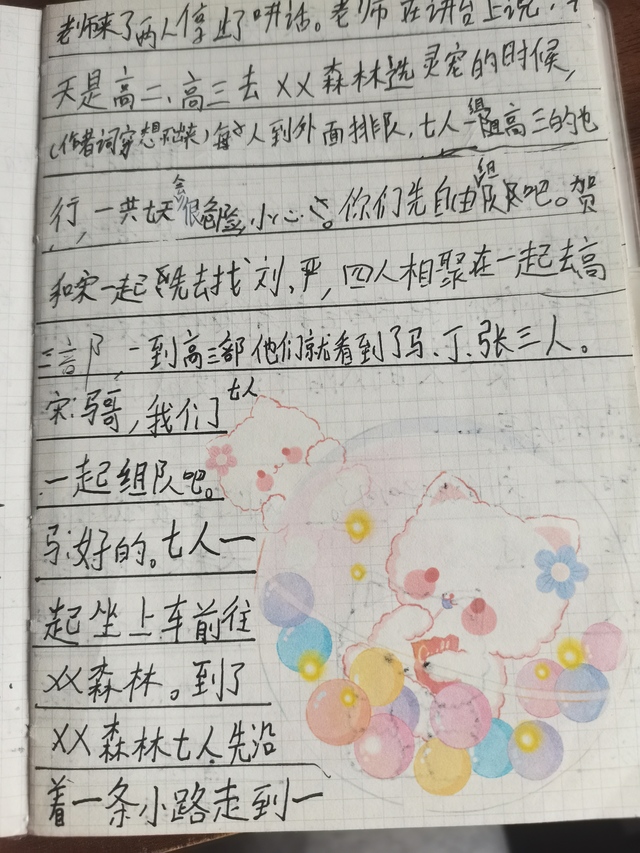 老师来了两人停止了讲话。老师在讲台上说，
天是高二、高三去XX森林选灵宠的时候，
(作者词穷想不出来)每个人到外面排队，七人一组高三的也
行，一共七天会很危险，小心点。你们先自由组队吧。贺
和宋一起先去找刘、严，四人相聚在一起去高
三部，一到高三部他们就看到了马、丁、张三人。
宋:马哥，我们七人
一起组队吧。
马:好的。七人一
起坐上车前往
XX森林。到了
XX森林七人先沿
着一条小路走到一